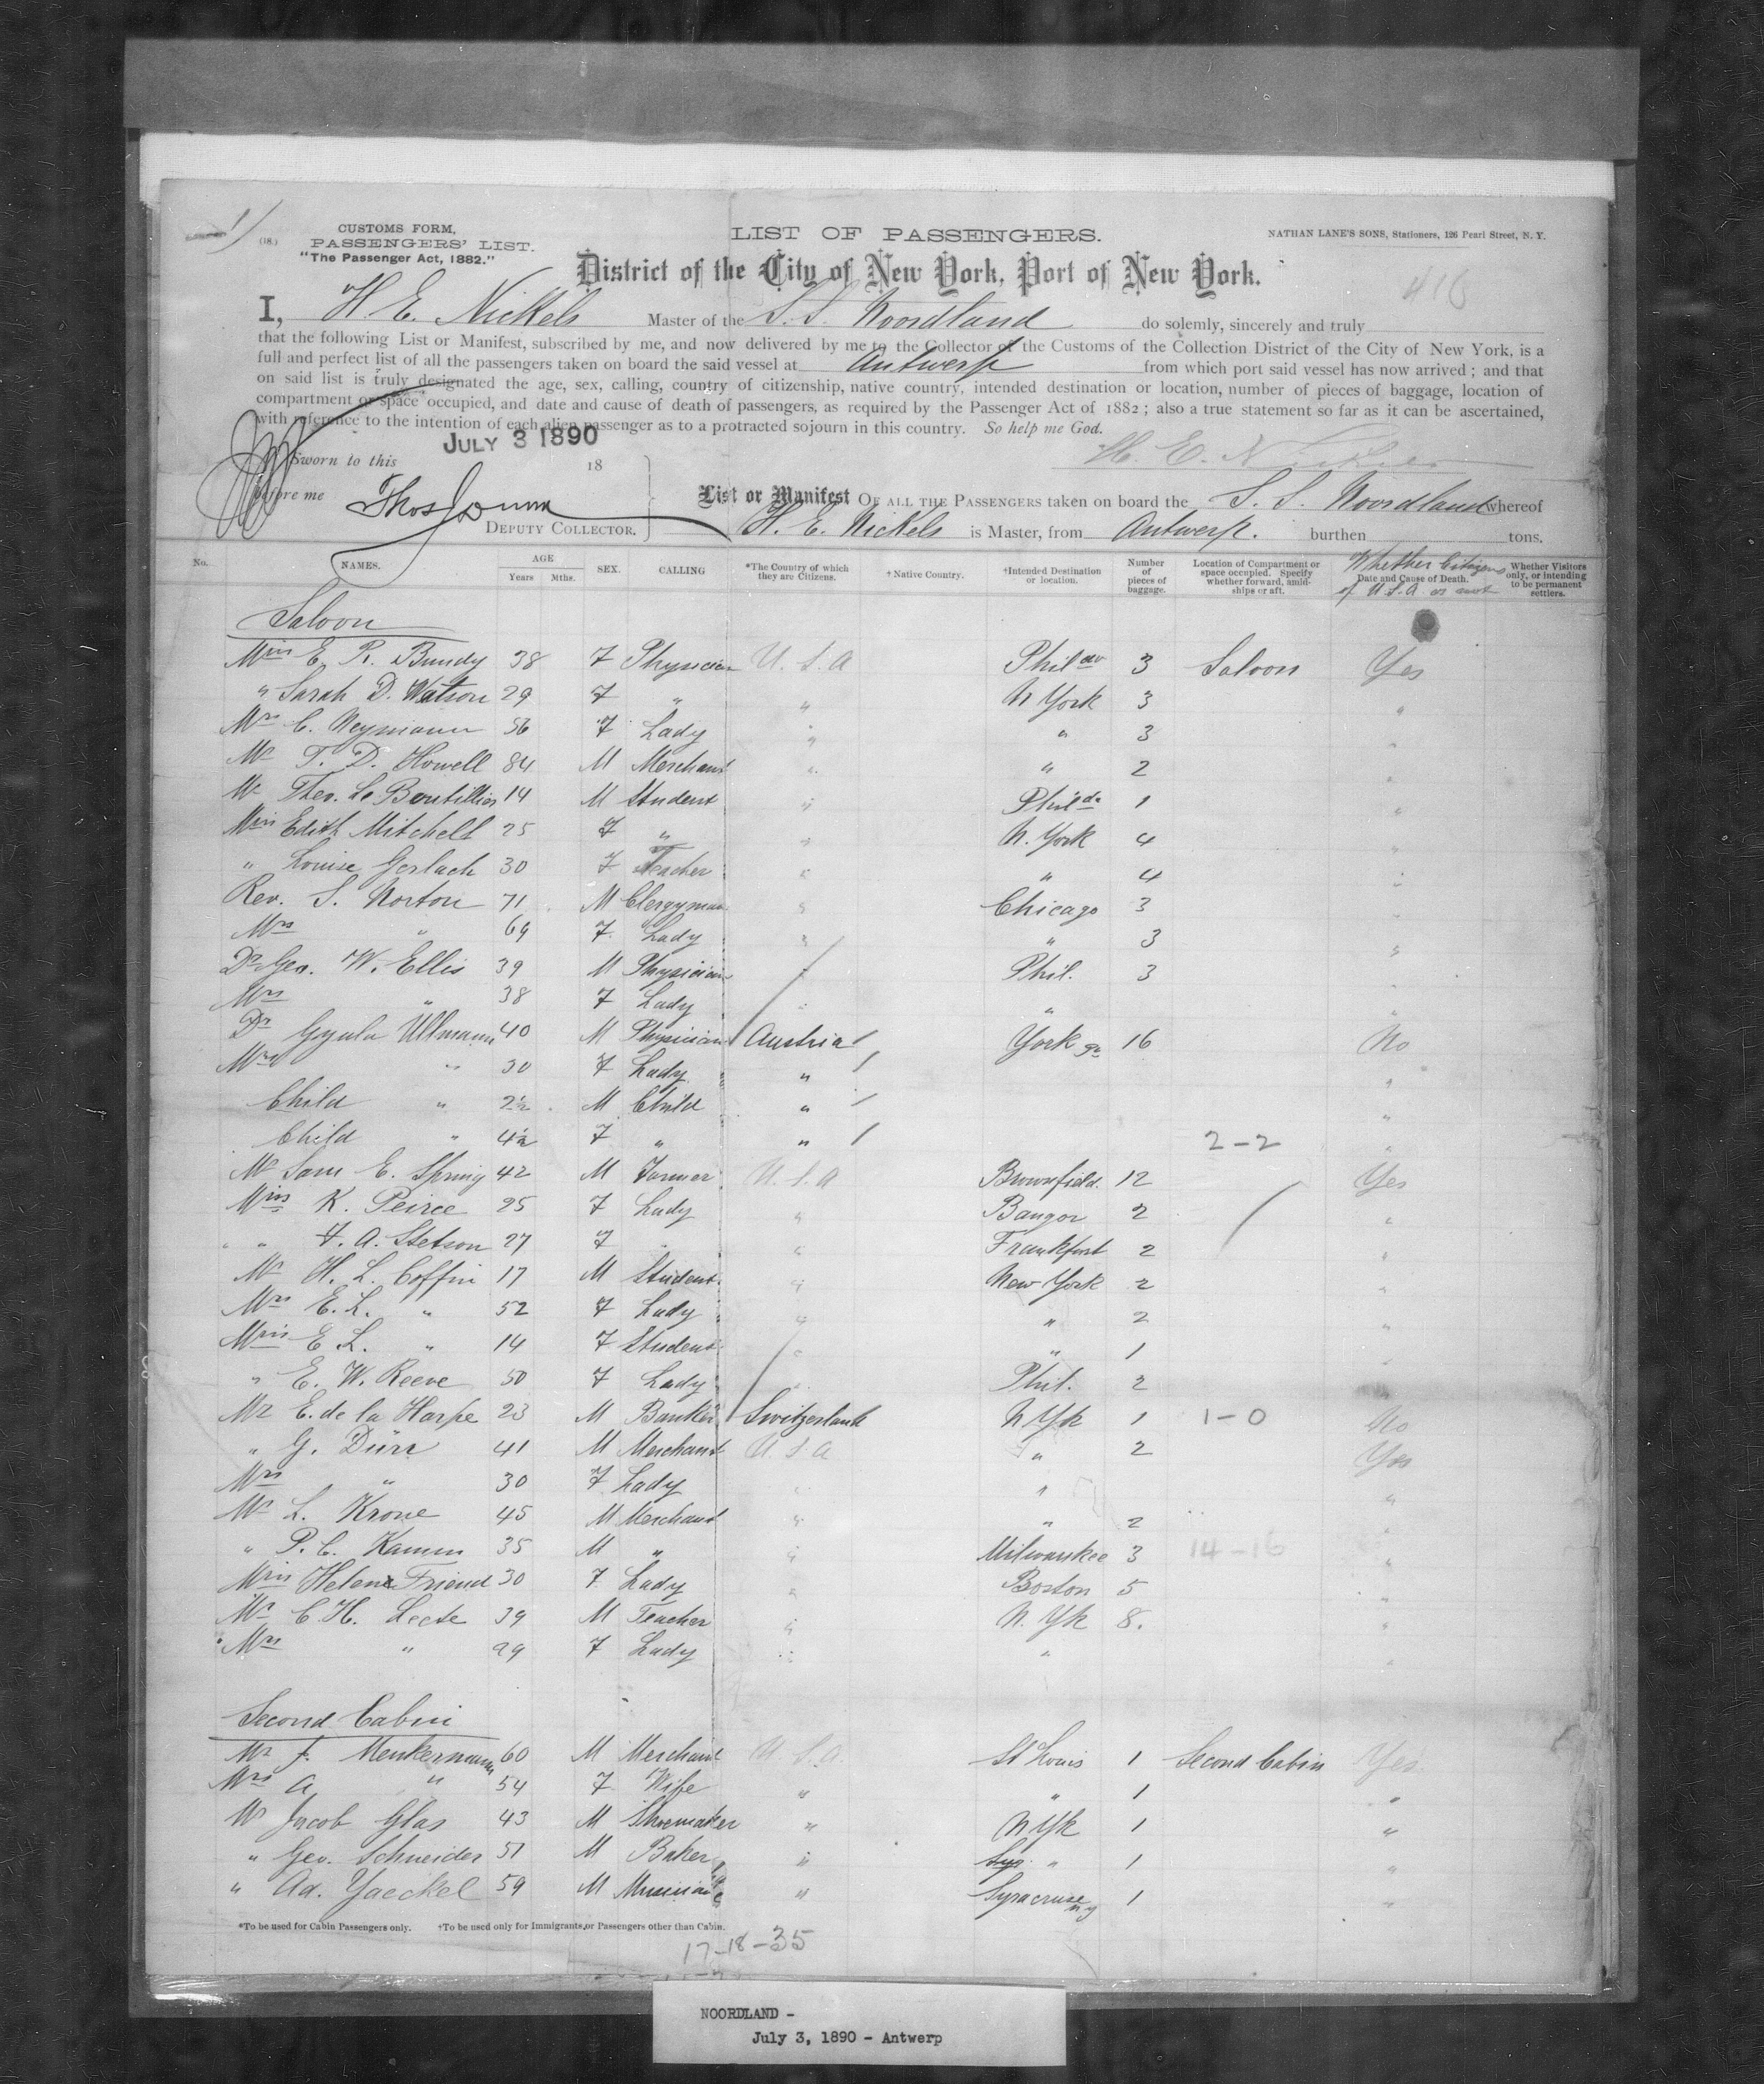 1/
(18.)
CUSTOMS FORM,
PASSENGERS' LIST.
"The Passenger Act, 1882."
LIST OF PASSENGERS.
NATHAN LANE'S SONS, Stationers, 126 Pearl Street, N. Y.
District of the City of New York, Port of New York.
416
I, H. E. Nickels Master of the S.S. Noordland do solemnly, sincerely and truly
that the following List or Manifest, subscribed by me, and now delivered by me to the Collector of the Customs of the Collection District of the City of New York, is a
full and perfect list of all the passengers taken on board the said vessel at Antwerp from which port said vessel has now arrived; and that
on said list is truly designated the age, sex, calling, country of citizenship, native country, intended destination or location, number of pieces of baggage, location of
compartment or space occupied, and date and cause of death of passengers, as required by the Passenger Act of 1882; also a true statement so far as it can be ascertained,
with reference to the intention of each alien passenger as to a protracted sojourn in this country. So help me God.
H. E. Nickels
Sworn to this JULY 3 1890 18
before me Thos
DEPUTY COLLECTOR.
List or Manifest OF ALL THE PASSENGERS taken on board the S. S. Noordland whereof
H. E. Nickels is Master, from Antwerp. burthen tons.
No. NAMES. AGE Years Mths. SEX. CALLING *The Country of which they are Citizens. †Native Country. †Intended Destination or location. Number of pieces of baggage. Location of Compartment or space occupied. Specify whether forward, amidships or aft. Date and Cause of Death. Whether Citizens of U.S.A or not Whether Visitors only, or intending to be permanent settlers.
Saloon
Miss E. R. Bundy 38 F Physician U.S.A Philda 3 Saloon Yes
" Sarah D. Watson 29 F " " N York 3 "
Mrs C. Neymann 56 F Lady " " 3 "
Mr T. D. Howell 84 M Merchant " " 2 "
Mr Theo. Le Boutillier 14 M Student " Philda 1 "
Miss Edith Mitchell 25 F " " N. York 4 "
" Louise Gerlach 30 F Teacher " " 4 "
Rev. S. Norton 71 M Clergyman " Chicago 3 "
Mrs " 69 F Lady " " 3 "
Dr Geo. W. Ellis 39 M Physician " Phil. 3 "
Mrs " 38 F Lady " " "
Dr Gyula Ullmann 40 M Physician Austria York Pa 16 No
Mrs " 30 F Lady " "
Child " 2½ M Child " "
Child " 4½ F " " 2-2 "
Mr Sam E. Spring 42 M Farmer U.S.A Brownfield. 12 Yes
Miss K. Peirce 25 F Lady " Bangor 2 "
" F. A. Stetson 27 F " Frankfort 2 "
Mr H. L. Coffin 17 M Student " New York 2 "
Mrs E. L. " 52 F Lady " " 2 "
Miss E L. " 14 F Student " " 1 "
" E. W. Reeve 50 F Lady " Phil. 2 "
Mr E. de la Harpe 23 M Banker Switzerland N Yk 1 1-0 No
" G. Dürr 41 M Merchant U.S.A " 2 Yes
Mrs " 30 F Lady " " "
Mr L. Krone 45 M Merchant " " 2 "
" P. C. Kamm 35 M " " Milwaukee 3 14-16 "
Miss Helene Friend 30 F Lady " Boston 5 "
Mr C. H. Leete 39 M Teacher " N. Yk 8. "
Mrs " 29 F Lady " " "
Second Cabin
Mr J. Menkernmann 60 M Merchant U.S.A. St Louis 1 Second Cabin Yes
Mrs A " 54 F Wife " " 1 "
Mr Jacob Glas 43 M Shoemaker " N Yk 1 "
" Geo. Schneider 51 M Baker " Syr. " 1 "
" Ad. Yaeckel 59 M Musician " Syracruse NY 1 "
*To be used for Cabin Passengers only. †To be used only for Immigrants, or Passengers other than Cabin.
17-18-35
NOORDLAND -
July 3, 1890 - Antwerp